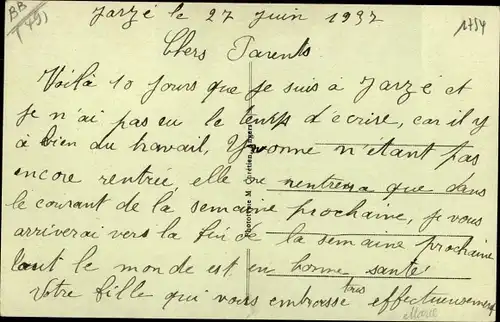 BB
T 495
Jarzé le 27 juin 1937
1754
Chers Parents
Voilà 10 jours que je suis à Jarzé et
je n'ai pas eu le temps d'écrire, car il y
à bien du travail, Yvonne n'étant pas
encore rentrée, elle ne rentrera que dans
le courant de la semaine prochaine, je vous
arriverai vers la fin de la semaine prochaine
tout le monde est en bonne santé
Votre fille qui vous embrasse tous effectueusement
Phototypie M. Chrétien, Angers